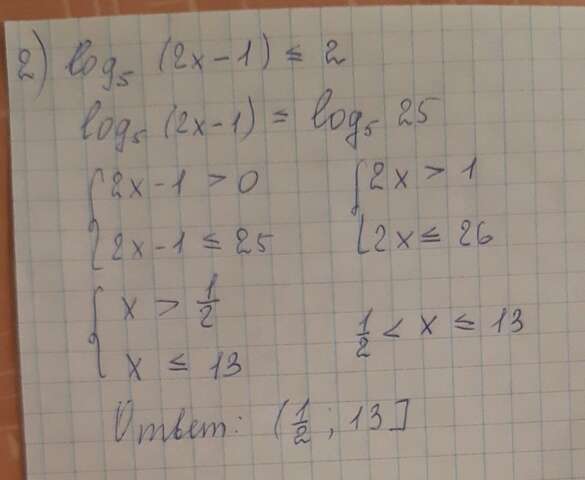 2) log₅ (2x-1) ≤ 2
log₅ (2x-1) ≤ log₅ 25
{ 2x-1 > 0 { 2x > 1
{ 2x-1 ≤ 25 { 2x ≤ 26
{ x > 1/2
{ x ≤ 13 1/2 < x ≤ 13
Ответ: (1/2 ; 13]